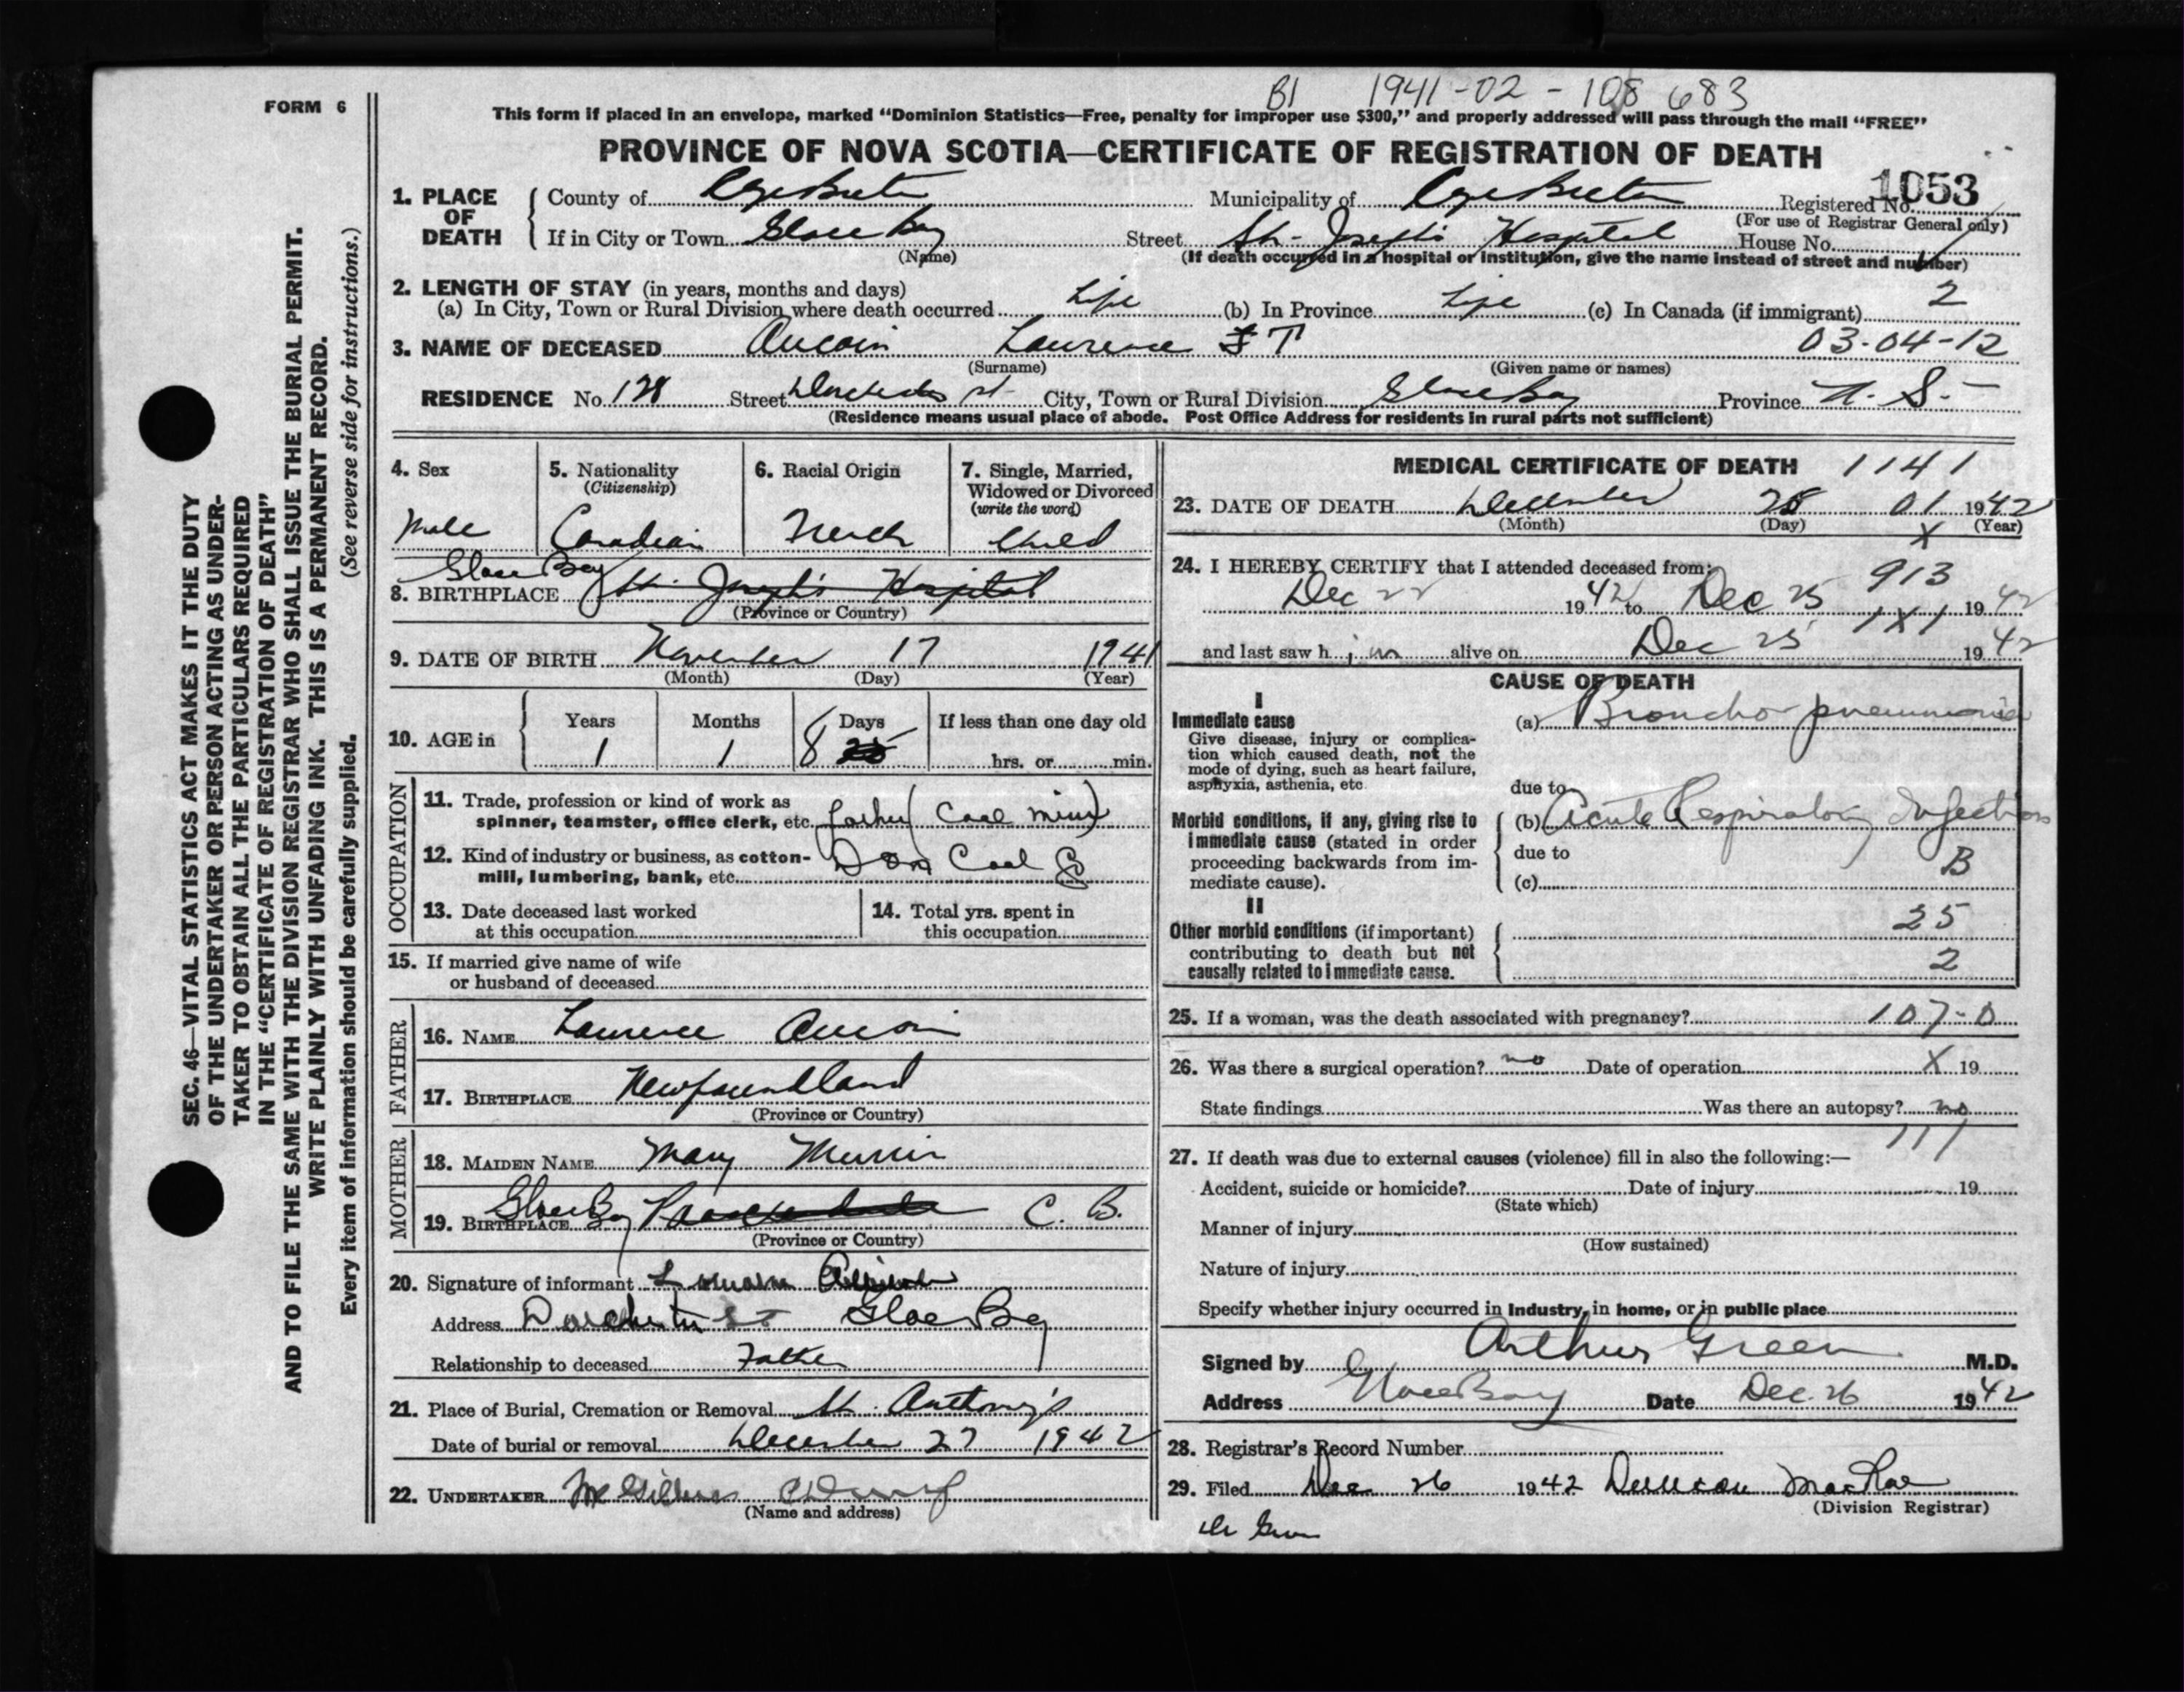 B1 1941-02-108683
FORM 6
This form if placed in an envelope, marked “Dominion Statistics—Free, penalty for improper use $300,” and properly addressed will pass through the mail “FREE”
PROVINCE OF NOVA SCOTIA—CERTIFICATE OF REGISTRATION OF DEATH
1053
1. PLACE OF DEATH
County of Cape Breton Municipality of Cape Breton Registered No.
(For use of Registrar General only)
If in City or Town Glace Bay Street St. Joseph's Hospital House No.
(Name) (If death occurred in a hospital or institution, give the name instead of street and number)
2. LENGTH OF STAY (in years, months and days)
(a) In City, Town or Rural Division where death occurred Life (b) In Province Life (c) In Canada (if immigrant) 2
3. NAME OF DECEASED Aucoin Laurence T 03-04-12
(Surname) (Given name or names)
RESIDENCE No. 128 Street Dorchester st City, Town or Rural Division Glace Bay Province N. S.
(Residence means usual place of abode. Post Office Address for residents in rural parts not sufficient)
4. Sex
Male
5. Nationality
(Citizenship)
Canadian
6. Racial Origin
French
7. Single, Married,
Widowed or Divorced
(write the word)
Child
Glace Bay
8. BIRTHPLACE St. Joseph's Hospital
(Province or Country)
9. DATE OF BIRTH November 17 1941
(Month) (Day) (Year)
10. AGE in Years Months Days If less than one day old
1 1 8 hrs. or min.
OCCUPATION
11. Trade, profession or kind of work as
spinner, teamster, office clerk, etc. father (Coal miner)
12. Kind of industry or business, as cotton-
mill, lumbering, bank, etc. Dom Coal Co
13. Date deceased last worked
at this occupation
14. Total yrs. spent in
this occupation
15. If married give name of wife
or husband of deceased
FATHER
16. NAME Laurence Aucoin
17. BIRTHPLACE Newfoundland
(Province or Country)
MOTHER
18. MAIDEN NAME Mary
19. BIRTHPLACE Glace Bay C. B.
(Province or Country)
20. Signature of informant
Address Dorchester st Glace Bay
Relationship to deceased Father
21. Place of Burial, Cremation or Removal St. Anthony's
Date of burial or removal December 27 1942
22. UNDERTAKER
(Name and address)
MEDICAL CERTIFICATE OF DEATH 1141
23. DATE OF DEATH December 25 01 1942
(Month) (Day) X (Year)
24. I HEREBY CERTIFY that I attended deceased from: 913
Dec 22 1942 to Dec 25 1942
1X1
and last saw him alive on Dec 25 1942
CAUSE OF DEATH
I
Immediate cause
Give disease, injury or complica-
tion which caused death, not the
mode of dying, such as heart failure,
asphyxia, asthenia, etc.
(a) Broncho pneumonia
due to
Morbid conditions, if any, giving rise to
immediate cause (stated in order
proceeding backwards from im-
mediate cause).
(b) Acute Respiratory Infection
due to B
(c)
II
Other morbid conditions (if important)
contributing to death but not
causally related to immediate cause.
25
2
25. If a woman, was the death associated with pregnancy? 107-0
26. Was there a surgical operation? no Date of operation X 19
State findings Was there an autopsy? no
111
27. If death was due to external causes (violence) fill in also the following:—
Accident, suicide or homicide? Date of injury 19
(State which)
Manner of injury
(How sustained)
Nature of injury
Specify whether injury occurred in Industry, in home, or in public place
Signed by Arthur Green M.D.
Address Glace Bay Date Dec. 26 1942
28. Registrar's Record Number
29. Filed Dec 26 1942 Duncan MacRae
(Division Registrar)
Dr Green
SEC. 46—VITAL STATISTICS ACT MAKES IT THE DUTY
OF THE UNDERTAKER OR PERSON ACTING AS UNDER-
TAKER TO OBTAIN ALL THE PARTICULARS REQUIRED
IN THE “CERTIFICATE OF REGISTRATION OF DEATH”
AND TO FILE THE SAME WITH THE DIVISION REGISTRAR WHO SHALL ISSUE THE BURIAL PERMIT.
WRITE PLAINLY WITH UNFADING INK. THIS IS A PERMANENT RECORD.
Every item of information should be carefully supplied. (See reverse side for instructions.)